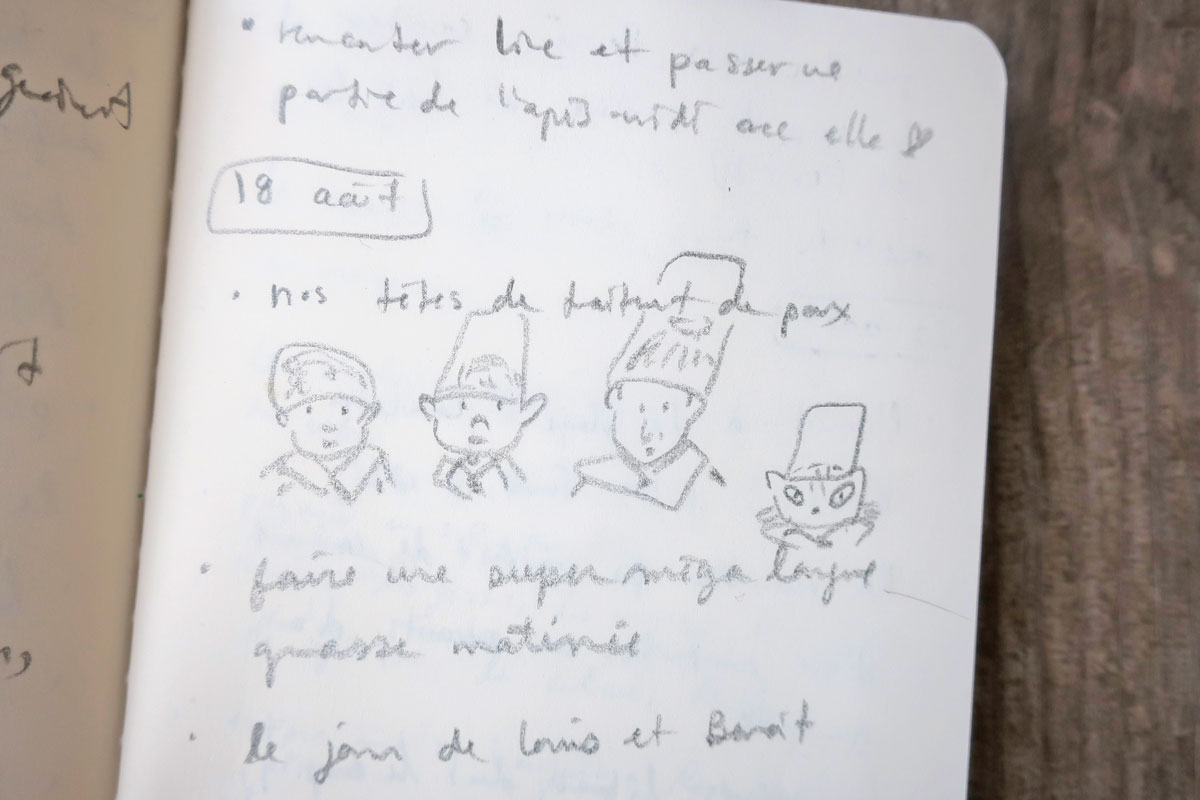 lire et passer une
partie de l'après-midi avec elle
18 août
nos têtes de traitement de poux
faire une super méga longue
grasse matinée
le jour de Louis et Benoît